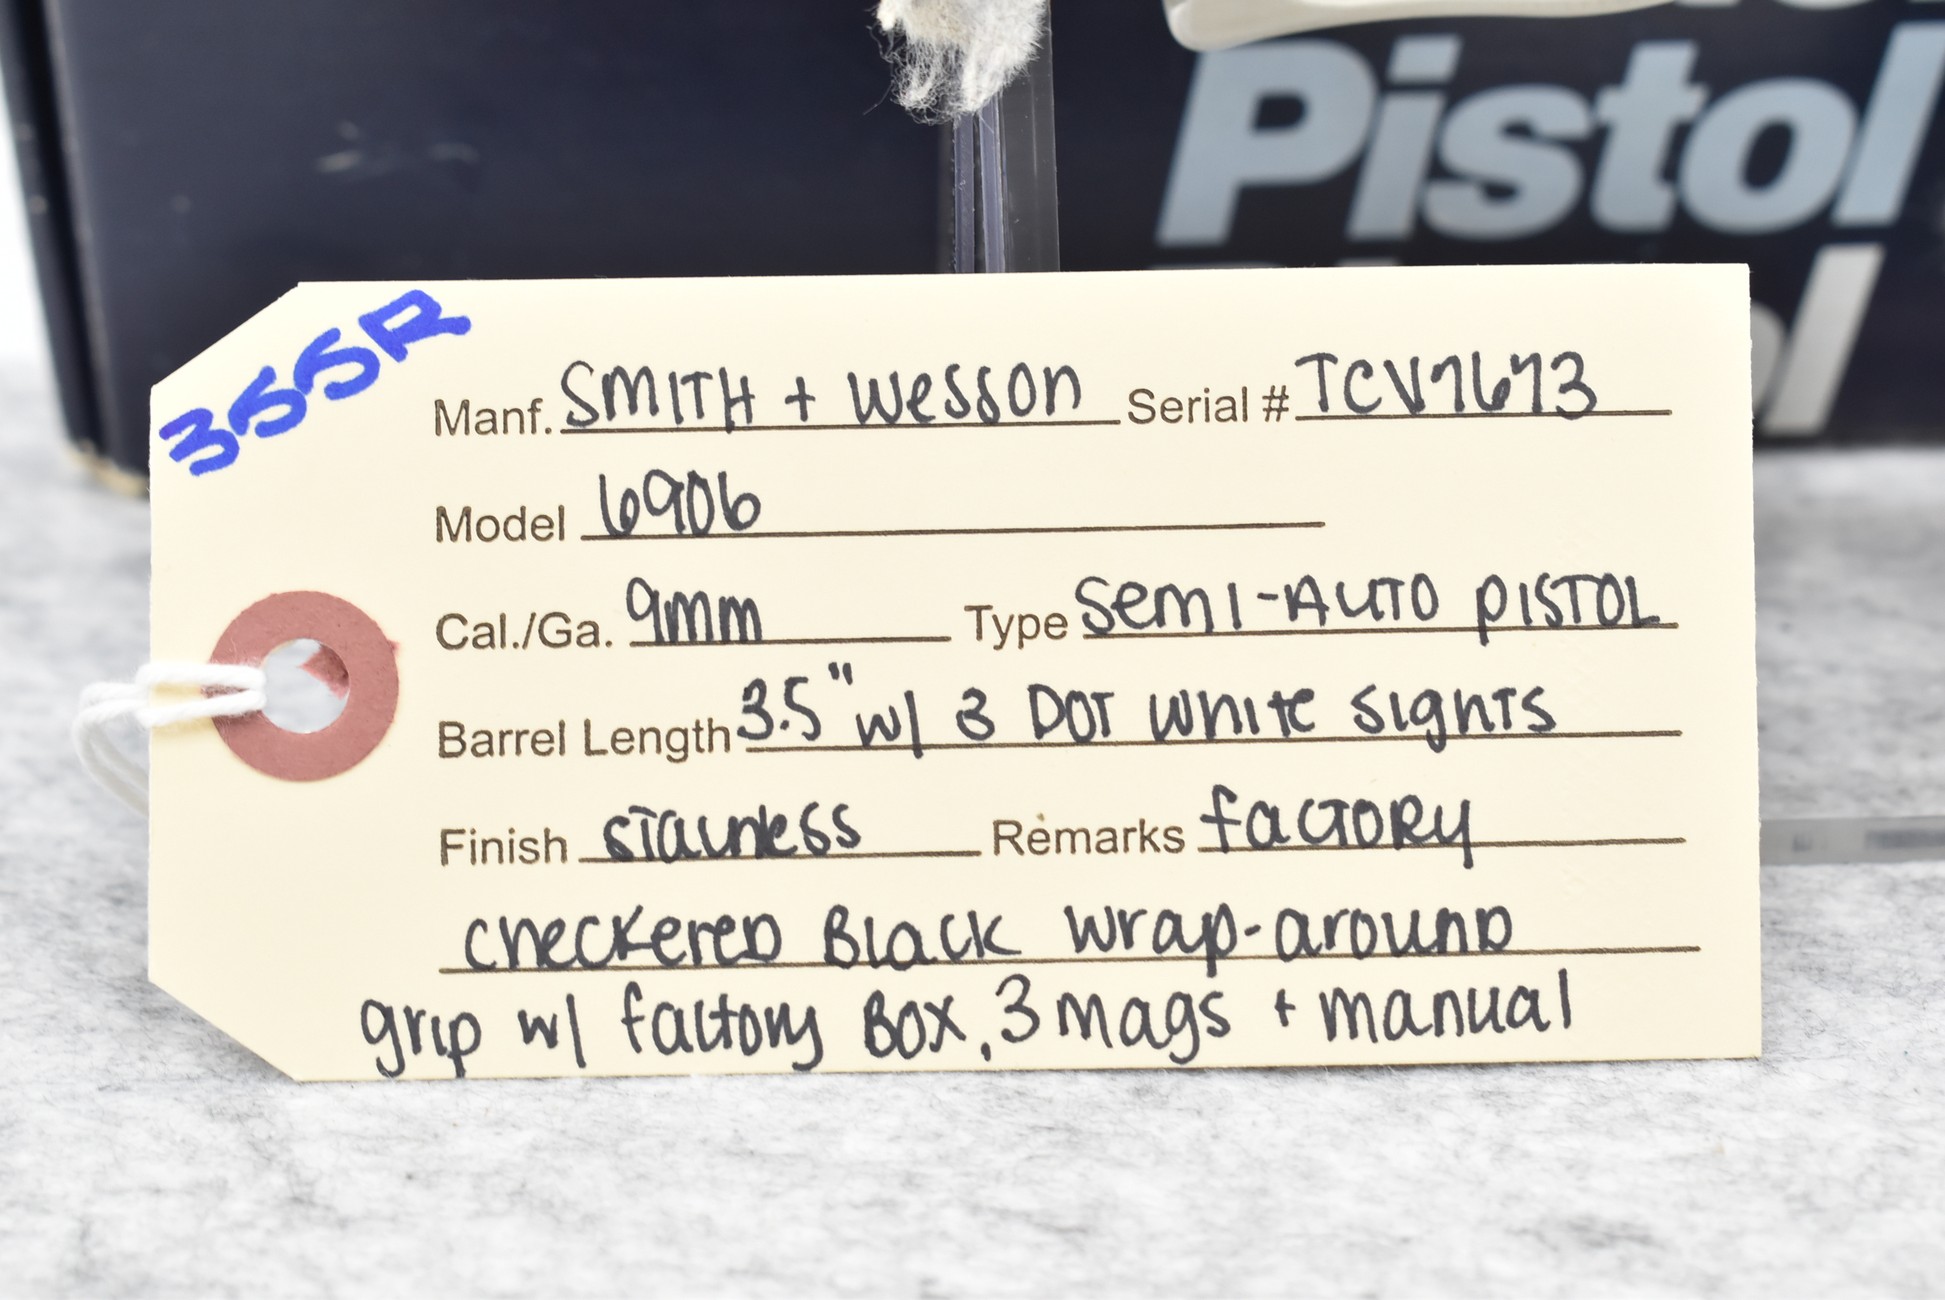 Pistol
355R
Manf. SMITH + Wesson Serial # TCV7673
Model 6906
Cal./Ga. 9mm Type Semi-Auto Pistol
Barrel Length 3.5" w/ 3 Dot White Sights
Finish Stainless Remarks Factory
Checkered Black Wrap-around
grip w/ factory Box, 3 mags + manual